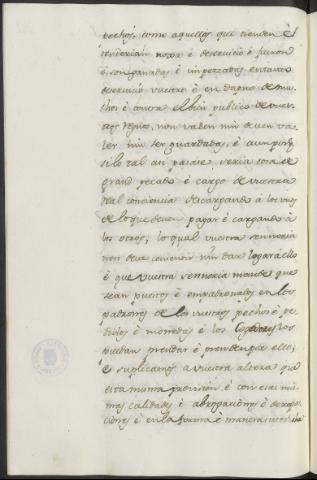 pechos, como aquellos que tienden è
tendrian noxa è deservicio è fueron
è son ganadas è impetradas en tanto
deservicio vuestro è en dapno de mu-
chos è contra el bien publico de vues-
tros regnos, non valen nin deven va-
ler nin ser guardadas, è aunporq.
si lo tal an pasase seria cosa de
grand pecado è cargo de vuestra
real conciencia descargando à los unos
de lo que deven pagar è cargando à
los otros; lo qual vuestra sennoria
non deve consentir nin dar logar à ello
è que vuestra sennoria mande que
sean puestos è empadronados en los
padrones de los vuestros pechos è pe-
didos è monedas è los cogedores los
puedan prendar è prenden por ello;
è suplicamos a vuestra alteza que
esta misma provision, è con esas mis-
mas calidades è abrogaciones è deroga-
ciones è en la forma è manera